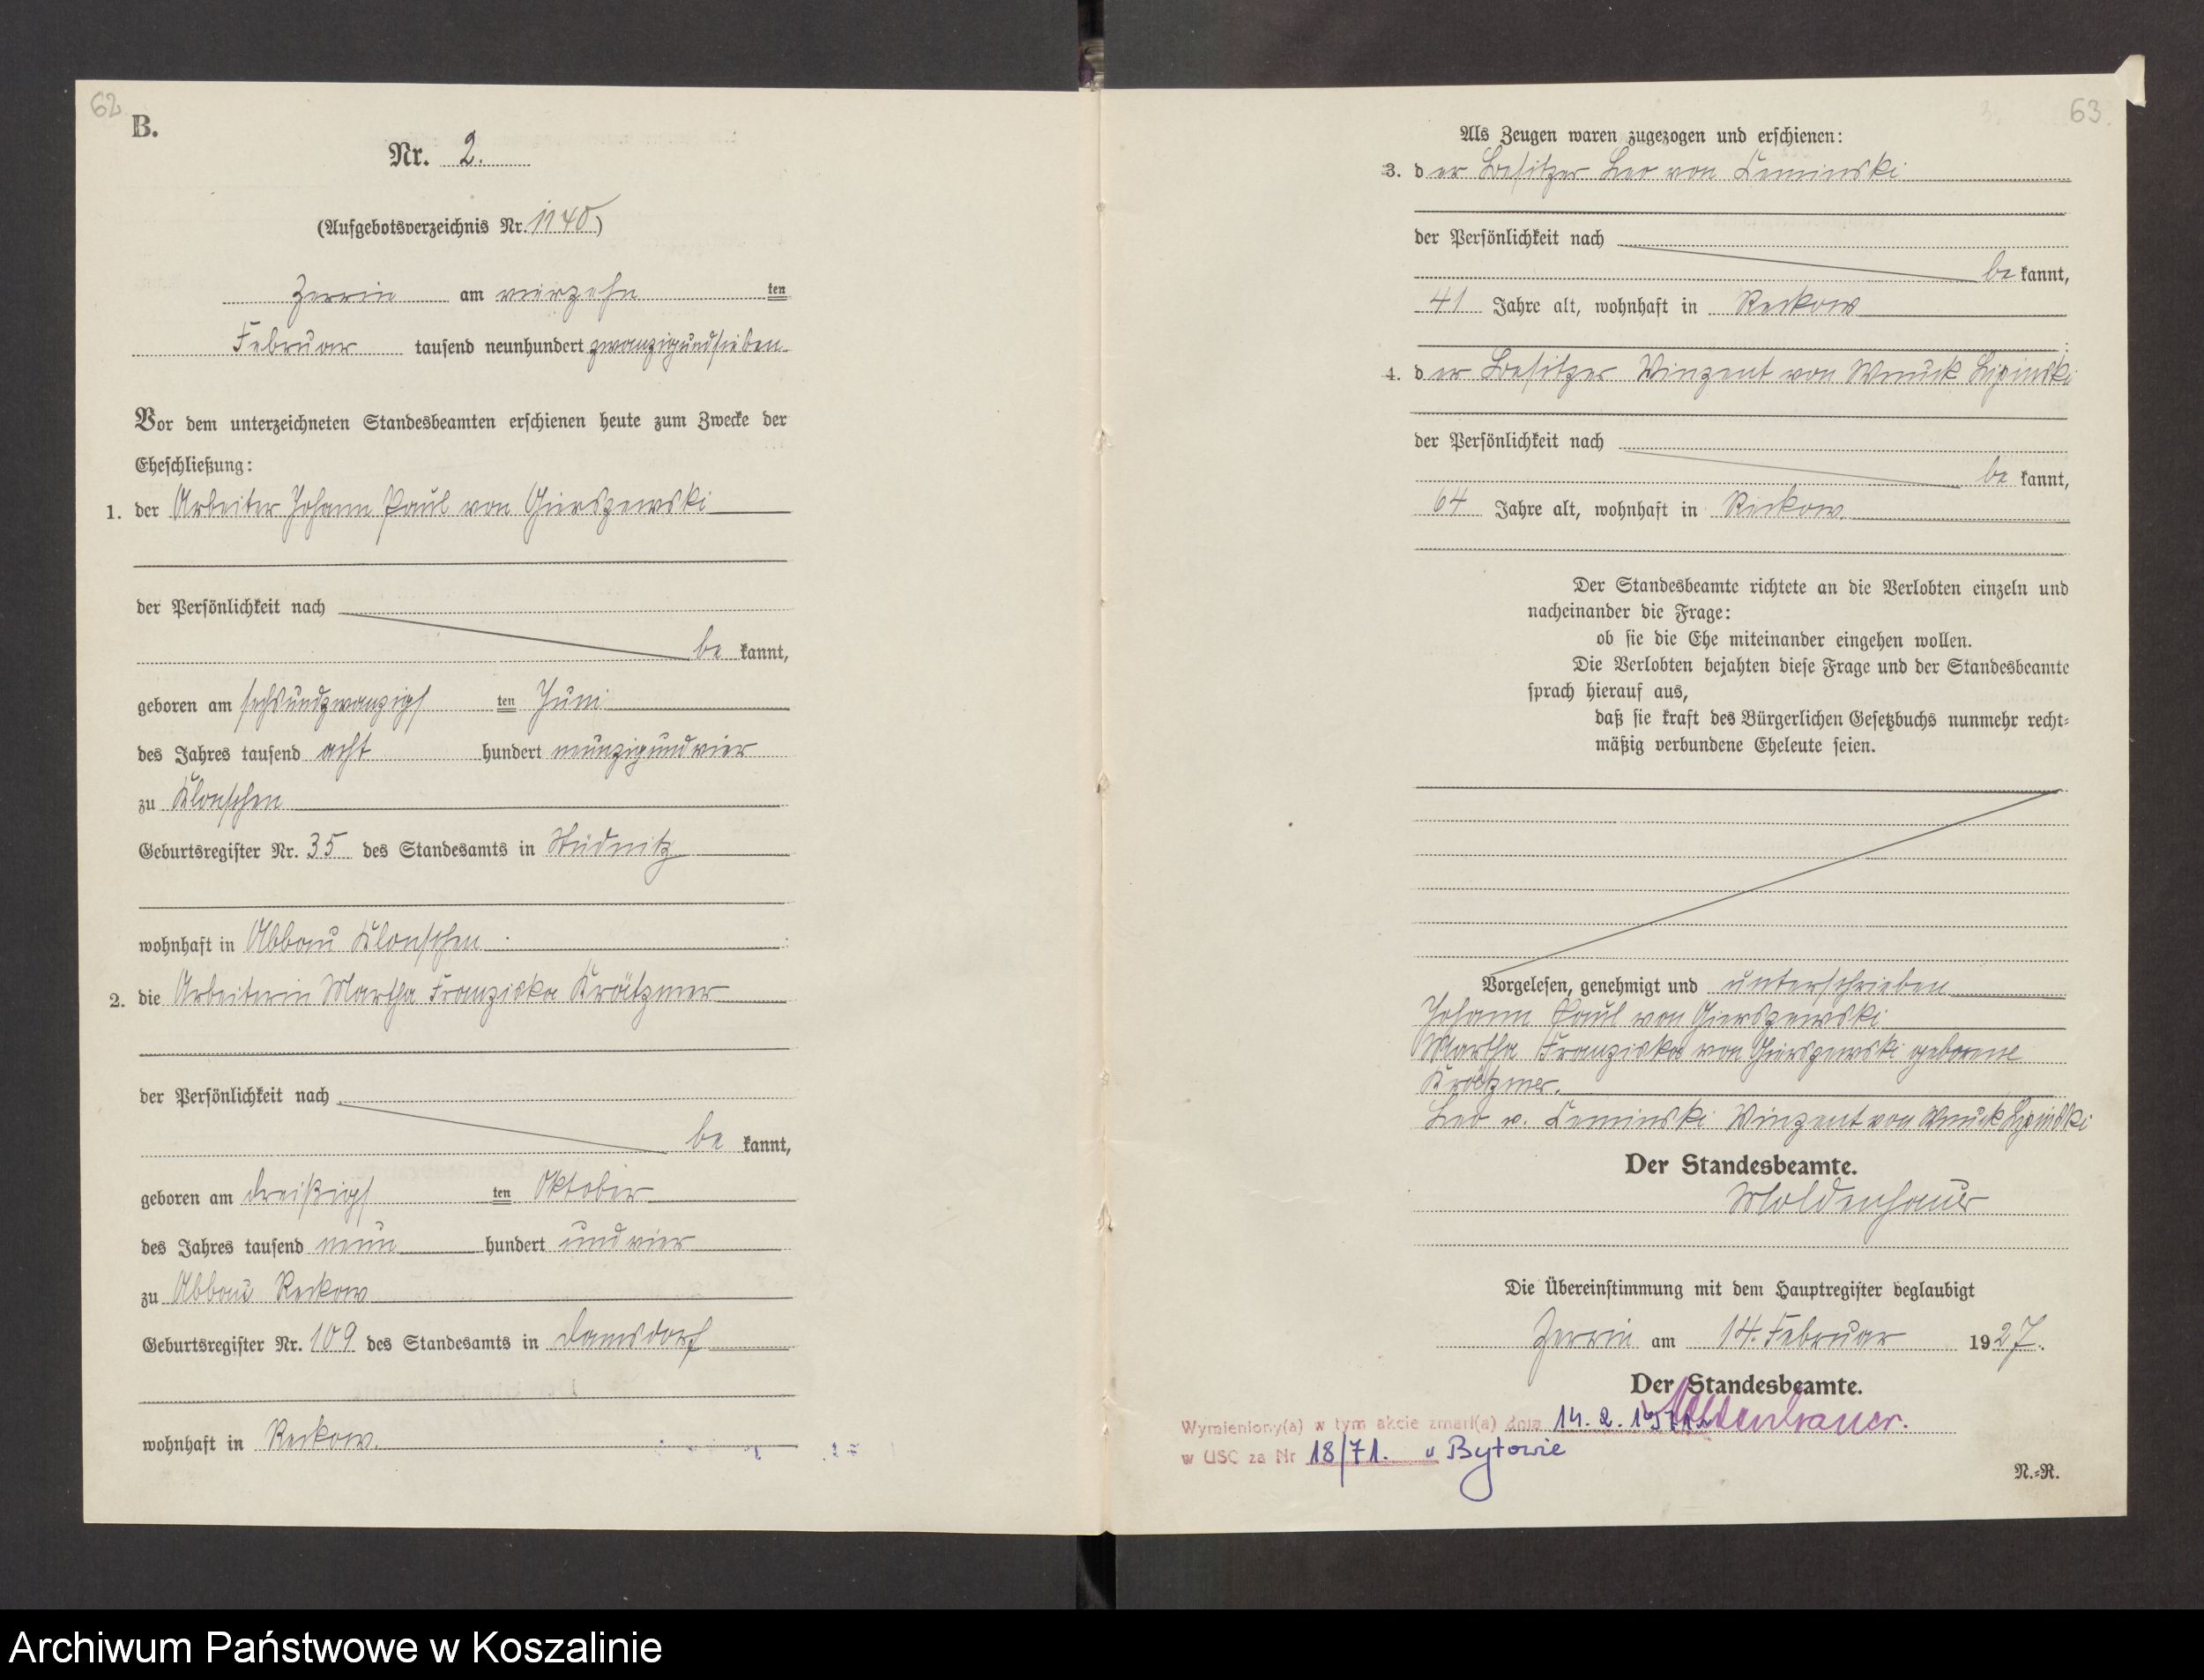 62
B.
Nr. 2.
(Aufgebotsverzeichnis Nr. )
Zerrin am vierzehn ten
Februar tausend neunhundert zwanzigundsieben
Vor dem unterzeichneten Standesbeamten erschienen heute zum Zwecke der
Eheschließung:
1. der Arbeiter Johann Paul von Gierszewski
der Persönlichkeit nach
be kannt,
geboren am sechsundzwanzigs ten Juni
des Jahres tausend acht hundert neunzigundvier
zu Klonschen
Geburtsregister Nr. 35 des Standesamts in Stüdnitz
wohnhaft in Abbau Klonschen
2. die Arbeiterin Martha Franziska Kroitzmer
der Persönlichkeit nach
be kannt,
geboren am dreißigs ten Oktober
des Jahres tausend neun hundert und vier
zu Abbau Reckow
Geburtsregister Nr. 109 des Standesamts in Damsdorf
wohnhaft in Reckow.
63
Als Zeugen waren zugezogen und erschienen:
3. der Besitzer Leo von Cieminski
der Persönlichkeit nach
be kannt,
41 Jahre alt, wohnhaft in Reckow
4. der Besitzer Winzent von Wnuck Lipinski
der Persönlichkeit nach
be kannt,
64 Jahre alt, wohnhaft in Reckow.
Der Standesbeamte richtete an die Verlobten einzeln und
nacheinander die Frage:
ob sie die Ehe miteinander eingehen wollen.
Die Verlobten bejahten diese Frage und der Standesbeamte
sprach hierauf aus,
daß sie kraft des Bürgerlichen Gesetzbuchs nunmehr recht-
mäßig verbundene Eheleute seien.
Vorgelesen, genehmigt und unterschrieben
Johann Paul von Gierszewski
Martha Franziska von Gierszewski geborene
Kroitzmer.
Leo v. Cieminski Winzent von Wnuck Lipinski
Der Standesbeamte.
Moldenhauer
Die Übereinstimmung mit dem Hauptregister beglaubigt
Zerrin am 14. Februar 1927.
Der Standesbeamte.
Moldenhauer.
Wymieniony(a) w tym akcie zmarł(a) dnia 14. 2. 1971 r.
w USC za Nr 18/71. w Bytowie
N.-R.
Archiwum Państwowe w Koszalinie